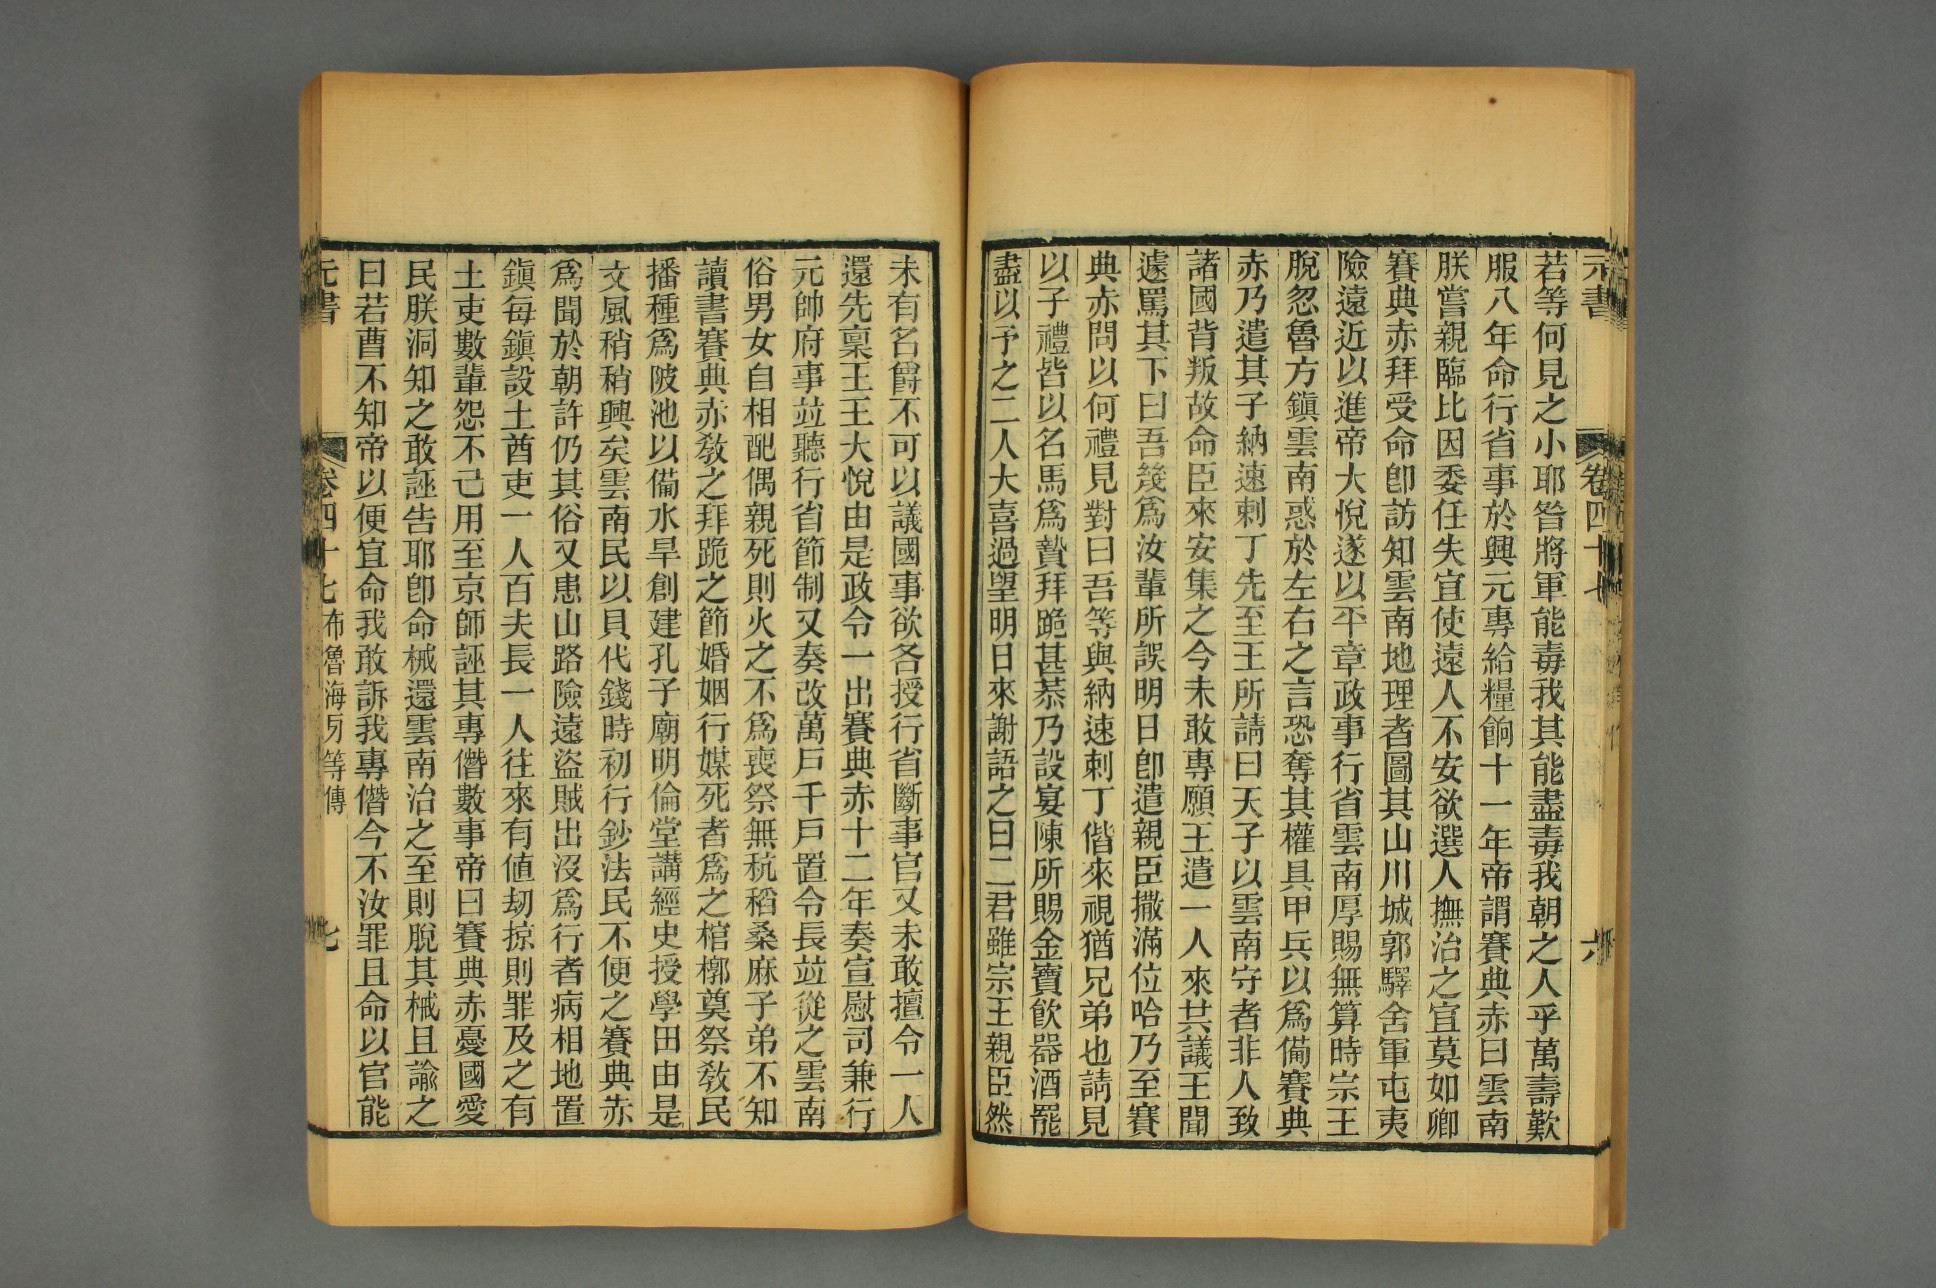 元書
卷四十七
六
若等何見之小耶昝將軍能毒我其能盡毒我朝之人乎萬壽歎
服八年命行省事於興元專給糧餉十一年帝謂賽典赤曰雲南
朕嘗親臨比因委任失宜使遠人不安欲選人撫治之宜莫如卿
賽典赤拜受命卽訪知雲南地理者圖其山川城郭驛舍軍屯夷
險遠近以進帝大悅遂以平章政事行省雲南厚賜無算時宗王
脫忽魯方鎮雲南惑於左右之言恐奪其權具甲兵以爲備賽典
赤乃遣其子納速剌丁先至王所請曰天子以雲南守者非人致
諸國背叛故命臣來安集之今未敢專願王遣一人來共議王聞
遽罵其下曰吾幾爲汝輩所誤明日卽遣親臣撒滿位哈乃至賽
典赤問以何禮見對曰吾等與納速剌丁偕來視猶兄弟也請見
以子禮皆以名馬爲贄拜跪甚恭乃設宴陳所賜金寶飮器酒罷
盡以予之二人大喜過望明日來謝語之曰二君雖宗王親臣然
未有名爵不可以議國事欲各授行省斷事官又未敢擅令一人
還先稟王王大悅由是政令一出賽典赤十二年奏宣慰司兼行
元帥府事竝聽行省節制又奏改萬戶千戶置令長竝從之雲南
俗男女自相配偶親死則火之不爲喪祭無秔稻桑麻子弟不知
讀書賽典赤敎之拜跪之節婚姻行媒死者爲之棺槨奠祭敎民
播種爲陂池以備水旱創建孔子廟明倫堂講經史授學田由是
文風稍稍興矣雲南民以貝代錢時初行鈔法民不便之賽典赤
爲聞於朝許仍其俗又患山路險遠盜賊出沒爲行者病相地置
鎮每鎮設土酋吏一人百夫長一人往來有値刼掠則罪及之有
土吏數輩怨不己用至京師誣其專僭數事帝曰賽典赤憂國愛
民朕洞知之敢誣告耶卽命械還雲南治之至則脫其械且諭之
曰若曹不知帝以便宜命我敢訴我專僭今不汝罪且命以官能
元書
卷四十七布魯海牙等傳
七